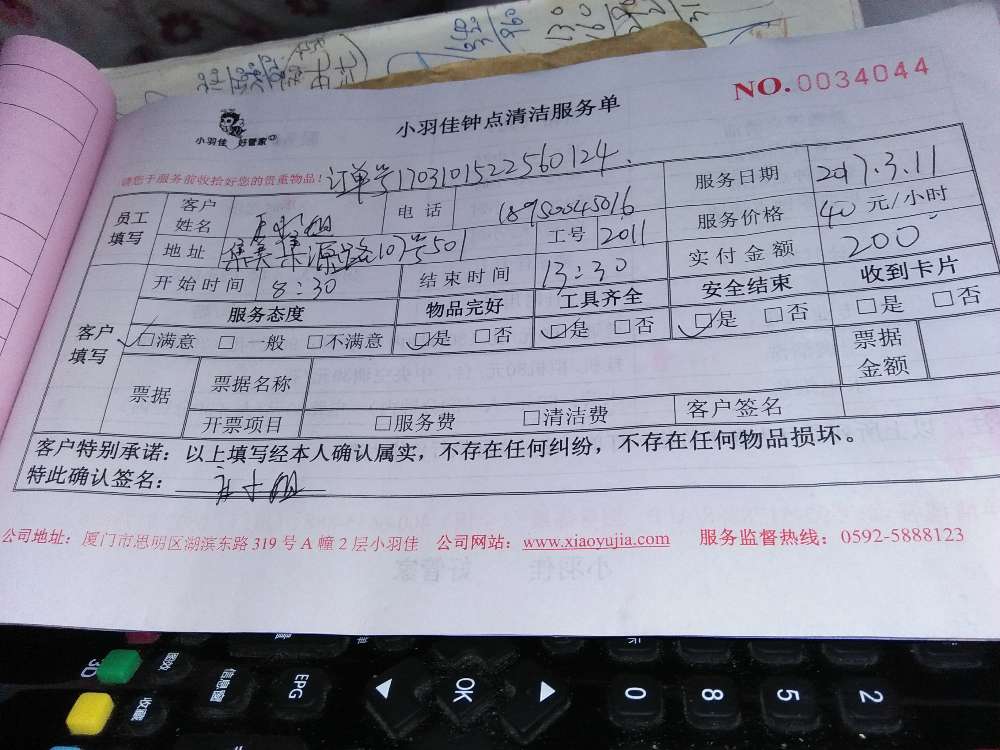 小羽佳 好管家
小羽佳钟点清洁服务单
NO.0034044
请您于服务前收拾好您的贵重物品!
订单号170310152256012 4
员工填写
客户姓名
电话 18950045016
服务日期 2017.3.11
地址 集美集源路107号501
工号 2011
服务价格 40 元/小时
开始时间 8:30
结束时间 13:30
实付金额 200
客户填写
服务态度 物品完好 工具齐全 安全结束 收到卡片
□满意 □一般 □不满意 □是 □否 □是 □否 □是 □否 □是 □否
票据
票据名称
票据金额
开票项目 □服务费 □清洁费 客户签名
客户特别承诺:以上填写经本人确认属实,不存在任何纠纷,不存在任何物品损坏。
特此确认签名:
公司地址:厦门市思明区湖滨东路319号A幢2层小羽佳 公司网站:www.xiaoyujia.com 服务监督热线:0592-5888123
3D
收藏
信息窗
EPG
OK
0
8
5
2